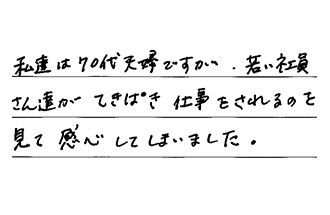 私達は70代夫婦ですが、若い社員
さん達が てきぱき 仕事をされるのを
見て 感心してしまいました。